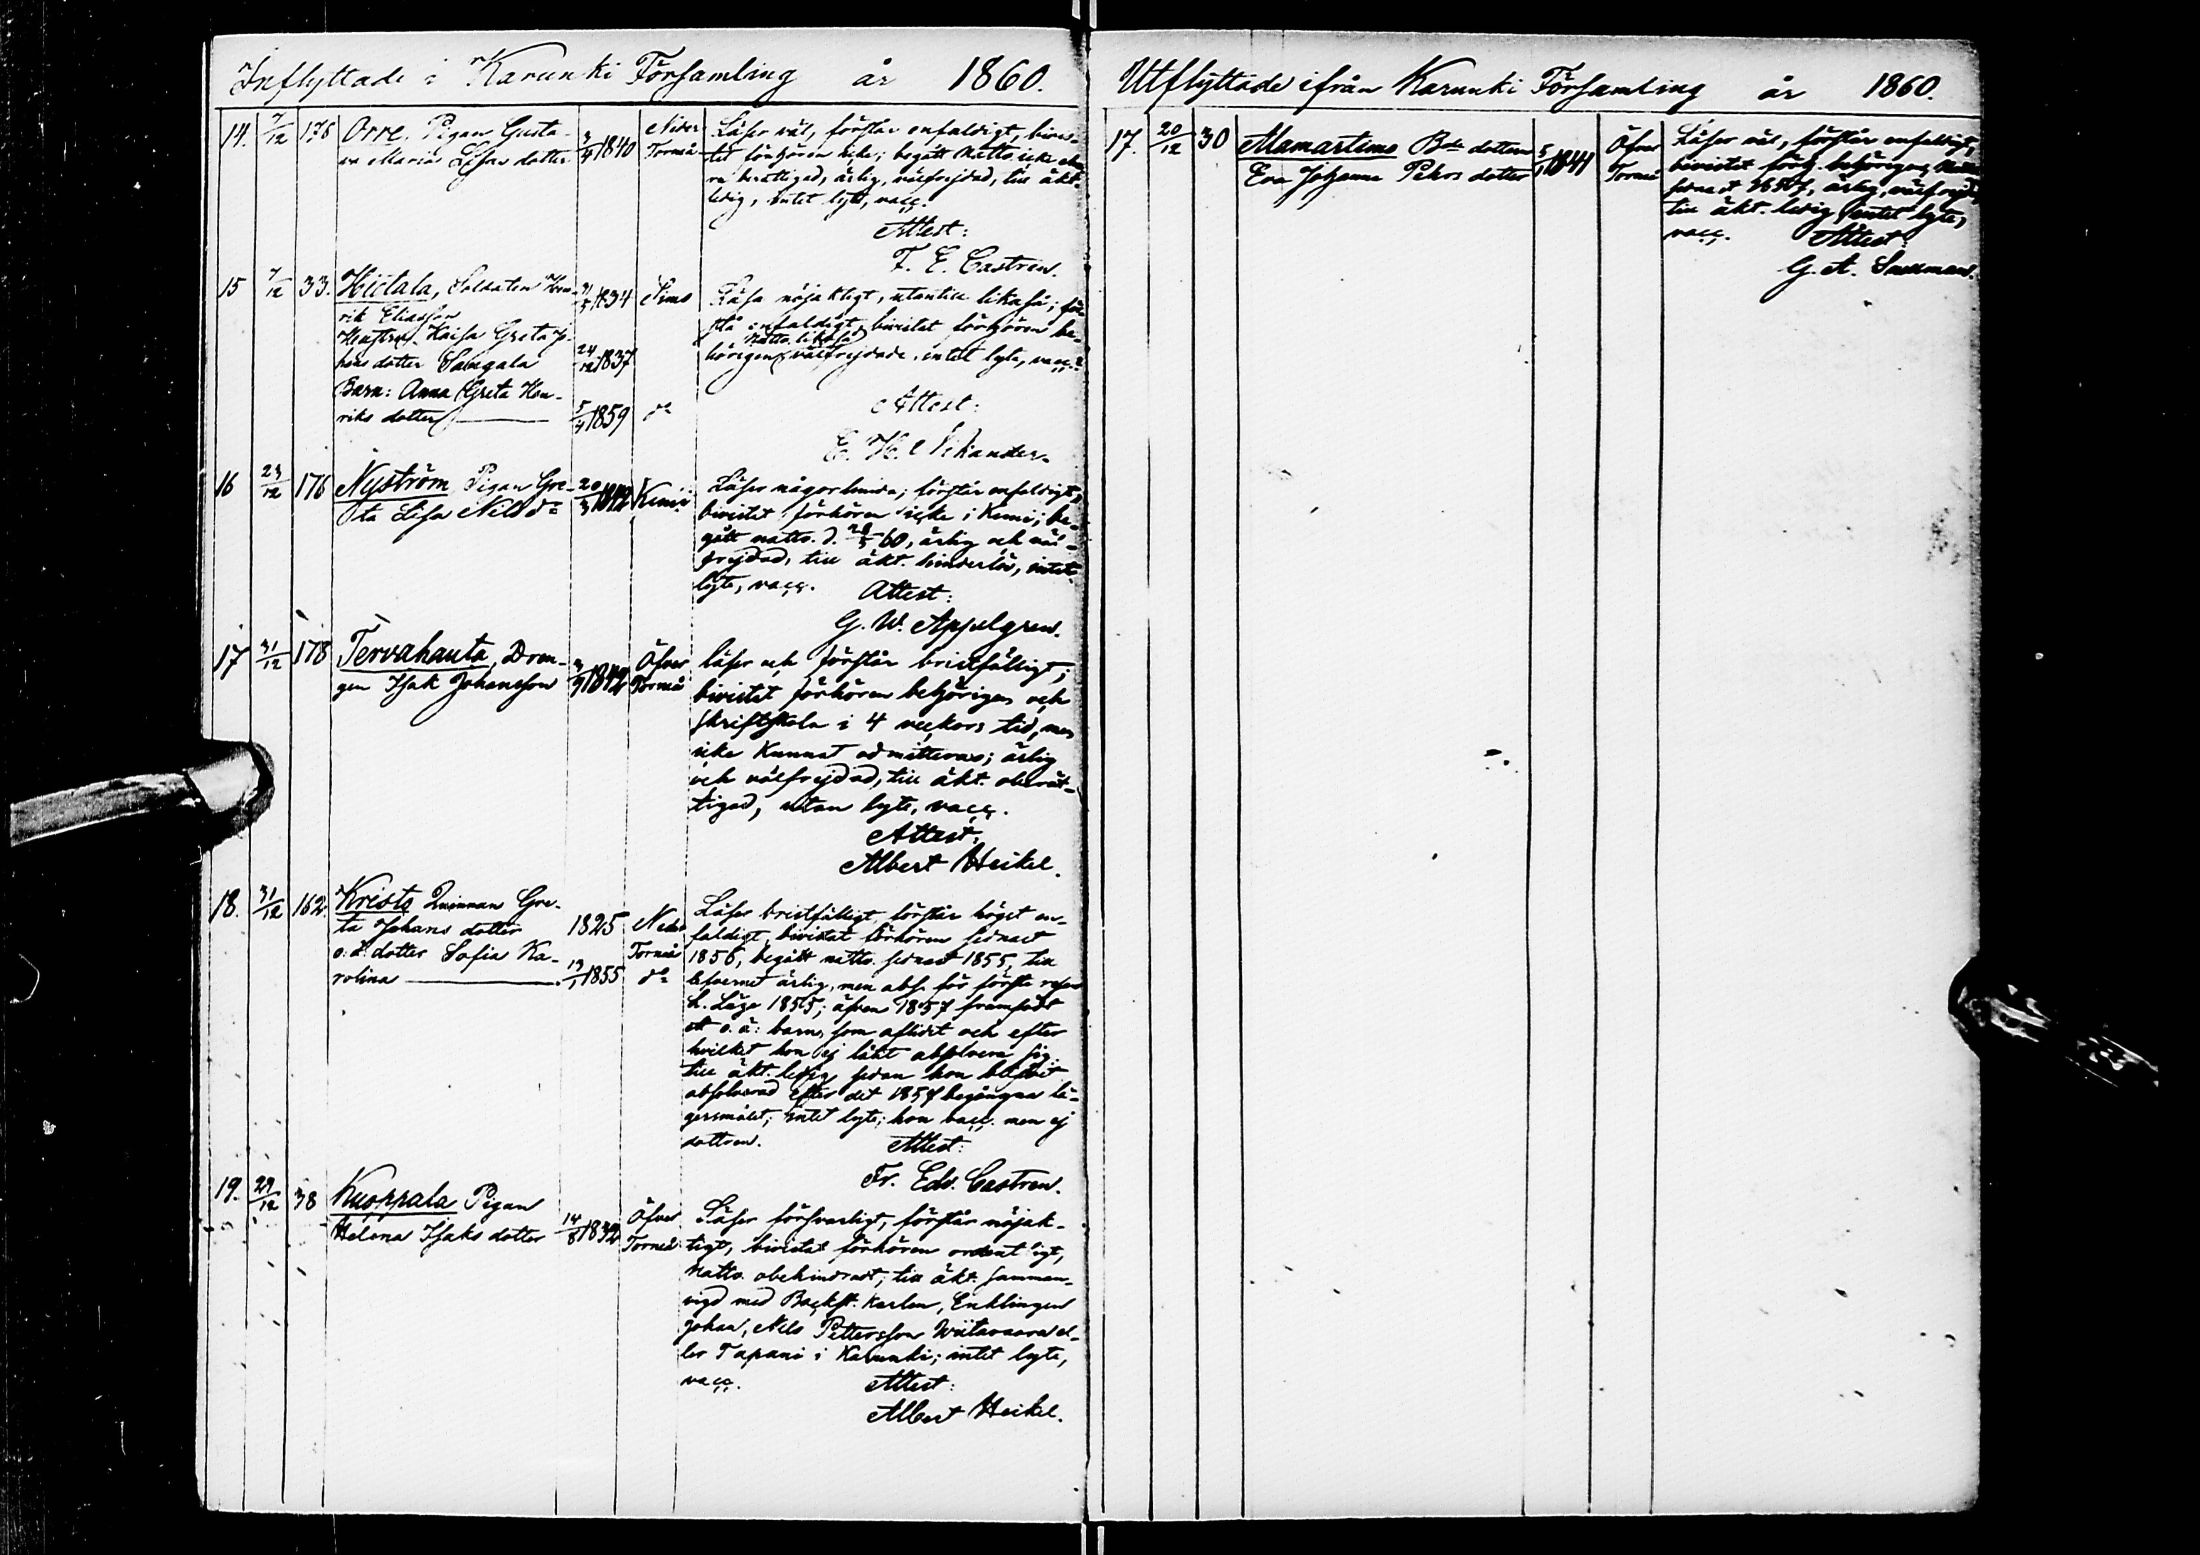 Inflyttade i Karunki Församling år 1860.
14. 7/12 178 Orre, Pigan Gusta-
va Maria Lisas dotter 3/4 1840 Neder Torneå
Läser väl, förstår enfaldigt, bivis-
tat förhören icke; begått nattv. icke
berättigad, ärlig, välfrejdad, till äkt.
ledig, intet lyte, vacc.
Attest:
F. E. Castrén.
15 7/12 33. Hiitala, Soldaten Hen-
rik Eliasson 31/3 1834 Simo
Hustru Kaisa Greta Jo-
hans dotter 24/12 1837
Barn: Anna Greta Hen-
riks dotter 5/4 1859 do
Läsa nöjaktigt, utantill likaså; för-
stå enfaldigt, bivistat förhören be-
nattv. likaså
hörigen, välfrejdade, intet lyte, vacc.
Attest:
16 23/12 176 Nyström Pigan Gre-
ta Lisa Nils dr 20/3 1842 Kemi
Läser någorlunda; förstår enfaldigt,
bivistat förhören icke i Kemi; be-
gått nattv. d. 60, ärlig och väl-
frejdad, till äkt. hinderlös, intet
lyte, vacc. Attest:
G. W. Appelgren.
17 31/12 178 Tervahauta, Dren-
gen Isak Johansson 3/9 1842 Öfver Torneå
läser och förstår bristfälligt;
bivistat förhören behörigen och
skriftskola i 4 veckors tid, men
icke kunnat admitteras; ärlig
och välfrejdad, till äkt. oberät-
tigad, utan lyte, vacc.
Attest:
Albert Heikel.
18. 31/12 162. Kristo Qvinnan Gre-
ta Johans dotter 1825 Neder Torneå
o. ä. dotter Sofia Ka-
rolina 13/1 1855 do
Läser bristfälligt, förstår högst en-
faldigt, bivistat förhören sednast
1856, begått nattv. sednast 1855, till
lefvernet ärlig, men abs. för första resan
L. Läge 1855; äfven 1857 framfödt
ett o. ä. barn, som aflidit och efter
hvilket hon ej låtit absolvera sig.
till äkt. ledig sedan hon blifvit
absolverad efter det 1857 begångna lä-
gersmålet; intet lyte; hon vacc. men ej
dottren. Attest:
Fr. Edv. Castrén.
19. 29/12 38 Kuoppala Pigan
Helena Isaks dotter 14/8 1832 Öfver Torneå
Läser försvarligt, förstår nöjak-
tigt, bivistat förhören ordentligt,
Nattv. obehindradt; till äkt. samman-
vigd med Backst. karlen, Enklingen
Johan, Nils Pettersson Wiitavaara el-
ler Tapani i Karunki; intet lyte,
vacc. Attest:
Albert Heikel.
Utflyttade ifrån Karunki Församling år 1860.
17. 20/12 30 Mamartimo Bde dottern
Eva Johanna Pehrs dotter 1841 Öfver Torneå
Läser väl, förstår enfaldigt,
bivistat förh. behörigen, Nattv.
sednast 1857, ärlig, välfrejdad,
till äkt. ledig, intet lyte,
vacc. Attest:
G. A. Snellman.